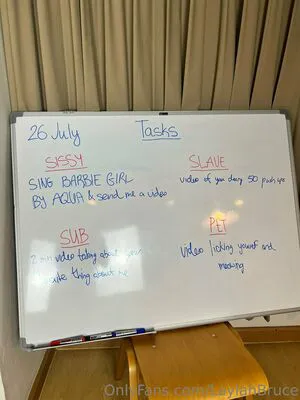 26 July
Tasks
SISSY
SING BARBIE GIRL
BY AQUA & send me a video
SLAVE
video of you doing 50 push ups
SUB
2 min video talking about your
thing about me
PET
Video licking yourself and
meowing